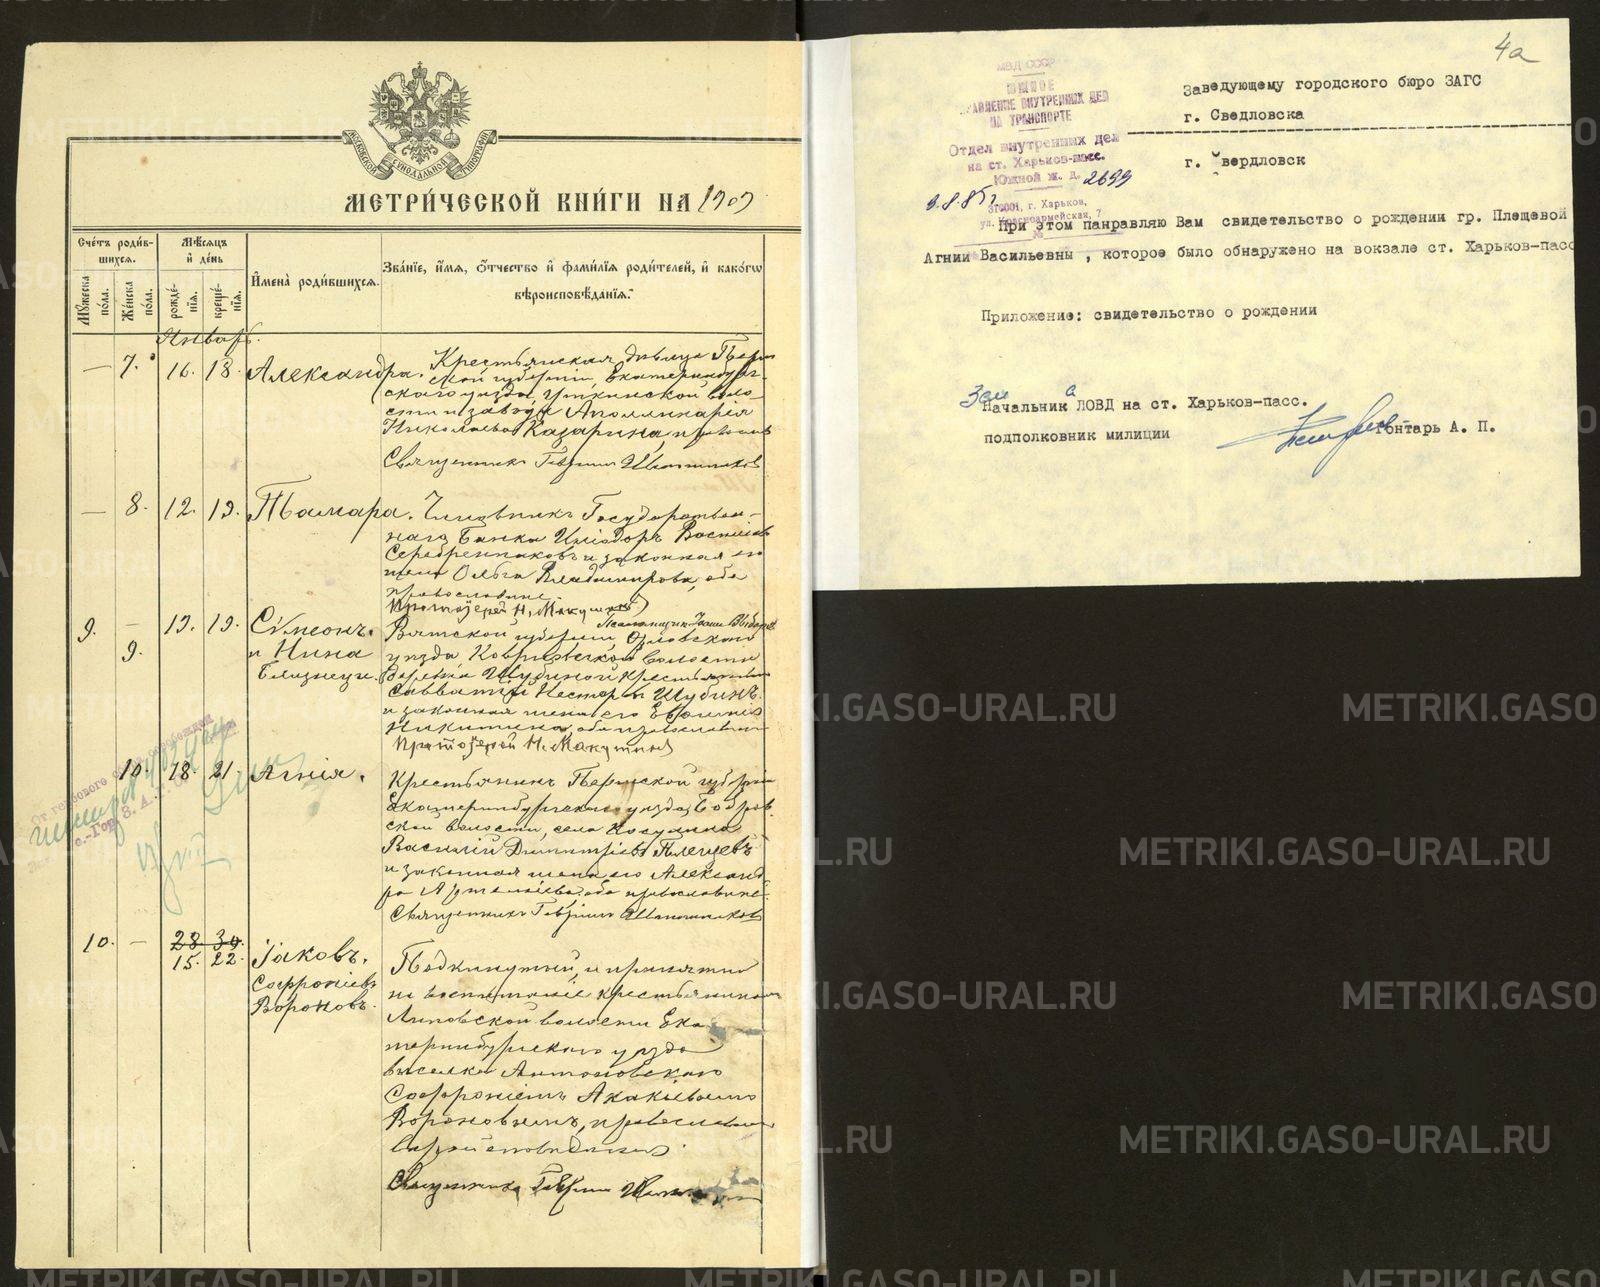 МОСКОВСКОЙ СИНОДАЛЬНОЙ ТИПОГРАФИИ
МЕТРИ́ЧЕСКОЙ КНИ́ГИ НА 1909
Счётъ роди́вшихся.
Мѣсяцъ и҆ де́нь
И҆мена̀ роди́вшихся.
Зва́нїе, и҆́мя, ѻ҆́тчество и҆ фами́лїя роди́телей, и҆ како́гѡ
вѣроисповѣ́данїя.
Мꙋ́жеска по́ла.
Же́нска по́ла.
рожде́нїя.
креще́нїя.
Январь.
— 7. 16. 18. Александра.
Крестьянская дѣвица Перм
ской губерніи, Екатеринбург-
скаго уѣзда, Уткинской воло-
сти и завода Аполлинарія
Николаева Казарина, православ
Священникъ Гавріилъ
— 8. 12. 19. Тамара.
Чиновникъ Государствен-
наго Банка Исидоръ Васильев
Серебренниковъ и законная его
жена Ольга Владимирова, оба
православные.
Протоіерей Н. Макушинъ
9. — 19. 19. Сѵмеонъ.
9. и Нина
Близнецы.
Вятской губерніи Орловскаго
уѣзда волости
деревни Шубиной крестьянинъ
Савватій Несторовъ Шубинъ
и законная жена его
Никитина, оба православные
Протоіерей Н. Макушинъ
10. 18. 21. Агнія.
Крестьянинъ Пермской губерніи
Екатеринбургскаго уѣзда, Бобров
ской волости, села Косулина
Василій Димитріевъ Плещевъ
и законная жена его Александ
ра Артеміева, оба православные.
Священникъ Гавріилъ
10. — 28 30.
15. 22. Іаковъ.
Софроніевъ
Вороновъ.
Подкинутый, и принятый
на воспитаніе крестьяниномъ
волости Ека
теринбургскаго уѣзда
выселка Антоновскаго
Софроніемъ Акакіевымъ
Вороновымъ, православнаго
вѣроисповѣданія.
Священникъ Гавріилъ
4а
МВД СССР
ЮЖНОЕ
УПРАВЛЕНИЕ ВНУТРЕННИХ ДЕЛ
НА ТРАНСПОРТЕ
Отдел внутренних дел
на ст. Харьков-пасс.
Южной ж. д. 2699
310001, г. Харьков,
ул. Красноармейская, 7
Заведующему городского бюро ЗАГС
г. Сведловска
г. вердловск
При этом панравляю Вам свидетельство о рождении гр. Плещевой
Агнии Васильевны , которое было обнаружено на вокзале ст. Харьков-пасс
Приложение: свидетельство о рождении
Зам Начальника ЛОВД на ст. Харьков-пасс.
подполковник милиции Гонтарь А. П.
METRIKI.GASO-URAL.RU